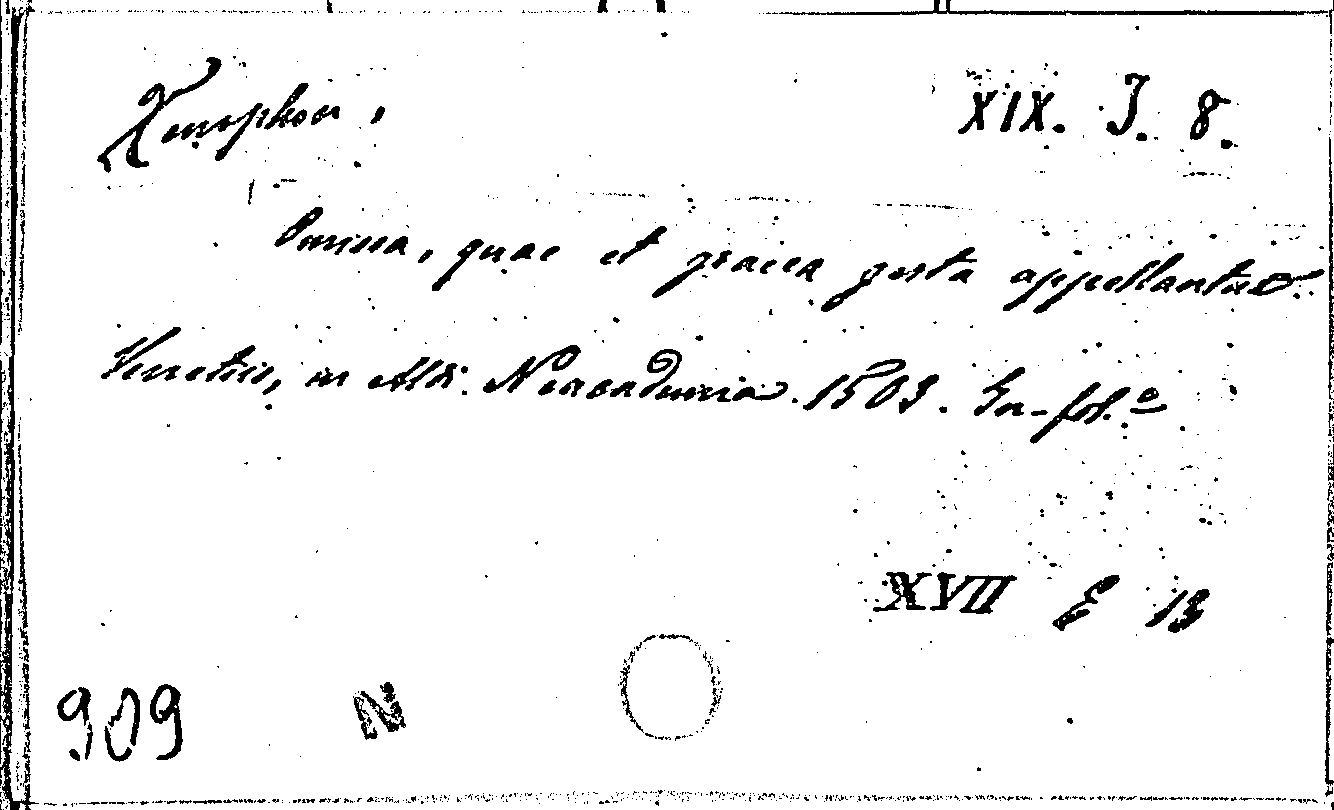 Xenophon,
XIX. J. 8.
Omissa, quae et graeca gesta appellantur.
Venetiis, in Aldi Neacademia. 1503. In-fol.º
XVII E 13
909 N